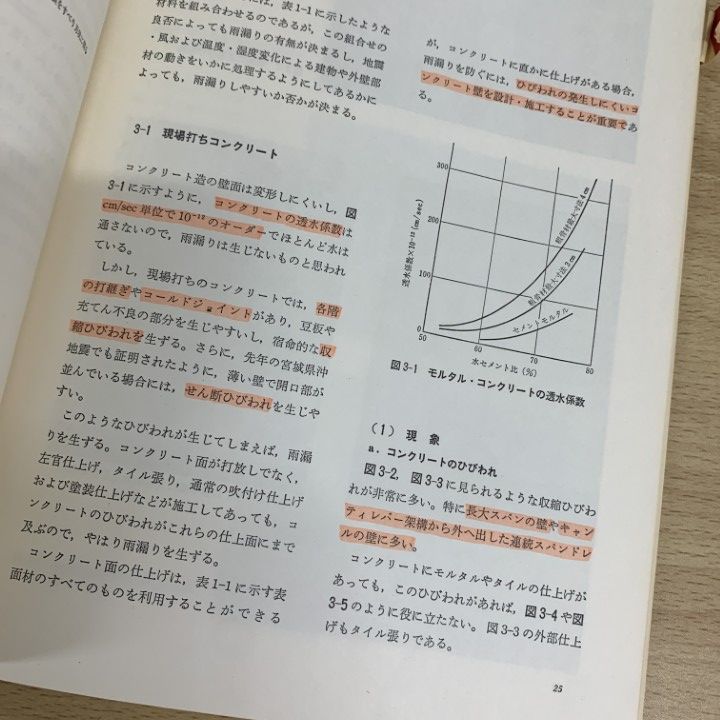 には，表1-1に示したような
材料を組み合わせるのであるが，この組合せの
良否によっても雨漏りの有無が決まるし，地震
・風および温度・湿度変化による建物や外壁部
材の動きをいかに処理するようにしてあるかに
よっても，雨漏りしやすいか否かが決まる。
3-1 現場打ちコンクリート
コンクリート造の壁面は変形しにくいし，図
3-1に示すように，コンクリートの透水係数は
cm/sec 単位で10⁻¹²のオーダーでほとんど水は
通さないので，雨漏りは生じないものと思われ
ている。
しかし，現場打ちのコンクリートでは，各階
の打継ぎやコールドジョイントがあり，豆板や
充てん不良の部分を生じやすいし，宿命的な収
縮ひびわれを生ずる。さらに，先年の宮城県沖
地震でも証明されたように，薄い壁で開口部が
並んでいる場合には，せん断ひびわれを生じや
すい。
このようなひびわれが生じてしまえば，雨漏
りを生ずる。コンクリート面が打放しでなく，
左官仕上げ，タイル張り，通常の吹付け仕上げ
および塗装仕上げなどが施工してあっても，コ
ンクリートのひびわれがこれらの仕上面にまで
及ぶので，やはり雨漏りを生ずる。
コンクリート面の仕上げは，表1-1に示す表
面材のすべてのものを利用することができる
が，コンクリートに直かに仕上げがある場合，
雨漏りを防ぐには，ひびわれの発生しにくいコ
ンクリート壁を設計・施工することが重要であ
る。
300
200
100
0
50
60
70
80
透水係数×10⁻¹²(cm/sec)
粗骨材最大寸法4cm
粗骨材最大寸法2cm
セメントモルタル
水セメント比(%)
図3-1 モルタル・コンクリートの透水係数
(1) 現象
a．コンクリートのひびわれ
図3-2，図3-3に見られるような収縮ひびわ
れが非常に多い。特に長大スパンの壁やキャン
ティレバー架構から外へ出した連続スパンドレ
ルの壁に多い。
コンクリートにモルタルやタイルの仕上げが
あっても，このひびわれがあれば，図3-4や図
3-5のように役に立たない。図3-3の外部仕上
げもタイル張りである。
25